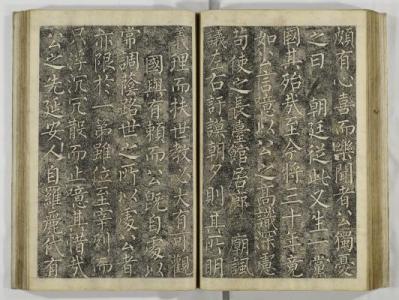 頗有心善而樂聞者公獨憂
之曰 朝廷從此又生一黨
國其殆哉至今將三十年竟
如公言意以公之高識深慮
苟使之長臺館居郎 廟謨
議左右訏謨朝夕則其所明
義理而扶世教以大有可觀
國興有賴而公旣自處以
常調蔭路世之所以處公者
亦限於一第雖位至宰列而
沉冗散而止意其惜哉
公之先延安人自羅麗代有